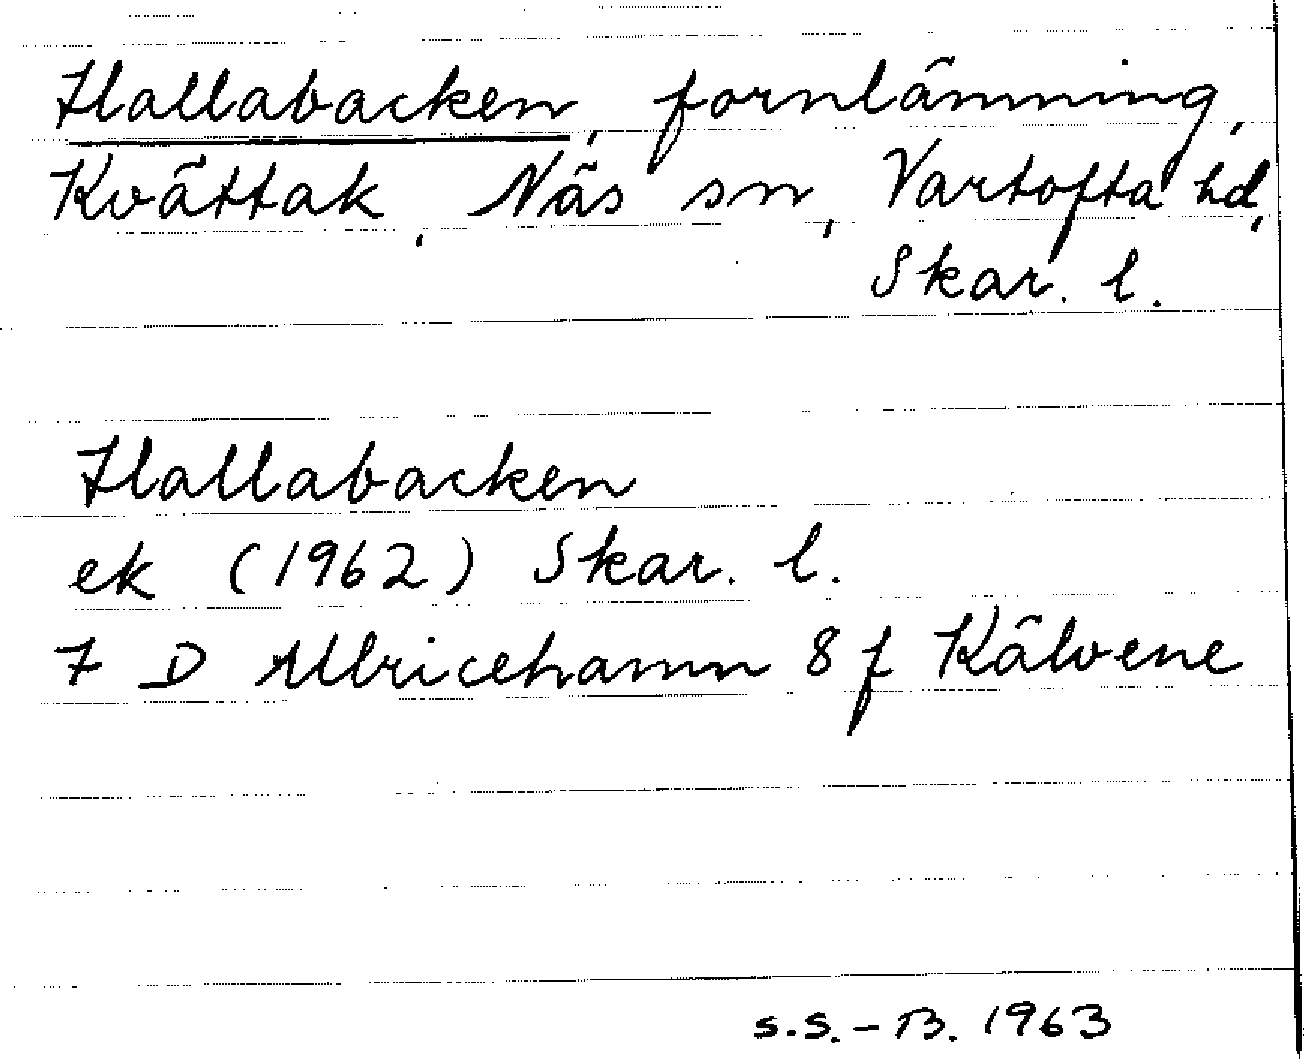 Hallabacken, fornlämning,
Kvättak, Näs sn, Vartofta hd,
Skar. l.
Hallabacken
ek (1962) Skar. l.
7 D Ulricehamn 8 f Kälvene
S.S.-B. 1963